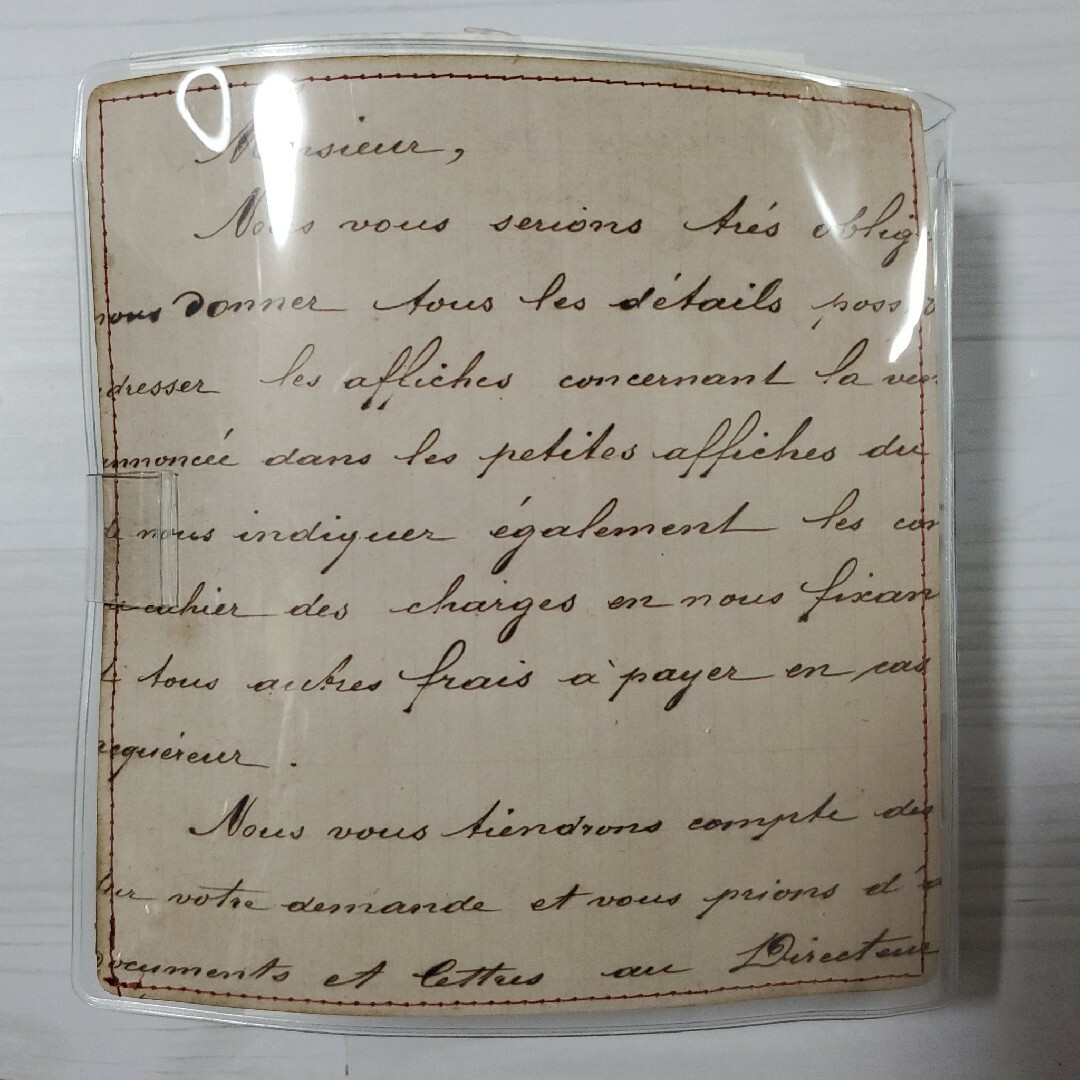 Monsieur,
Nous vous serions trés oblig
nous donner tous les détails poss
dresser les affiches concernant la ven
annoncée dans les petites affiches du
nous indiquer également les con
cahier des charges en nous fixan
t tous autres frais à payer en cas
cquéreur.
Nous vous tiendrons compte des
votre demande et vous prions d'a
ocuments et lettres au Directeur